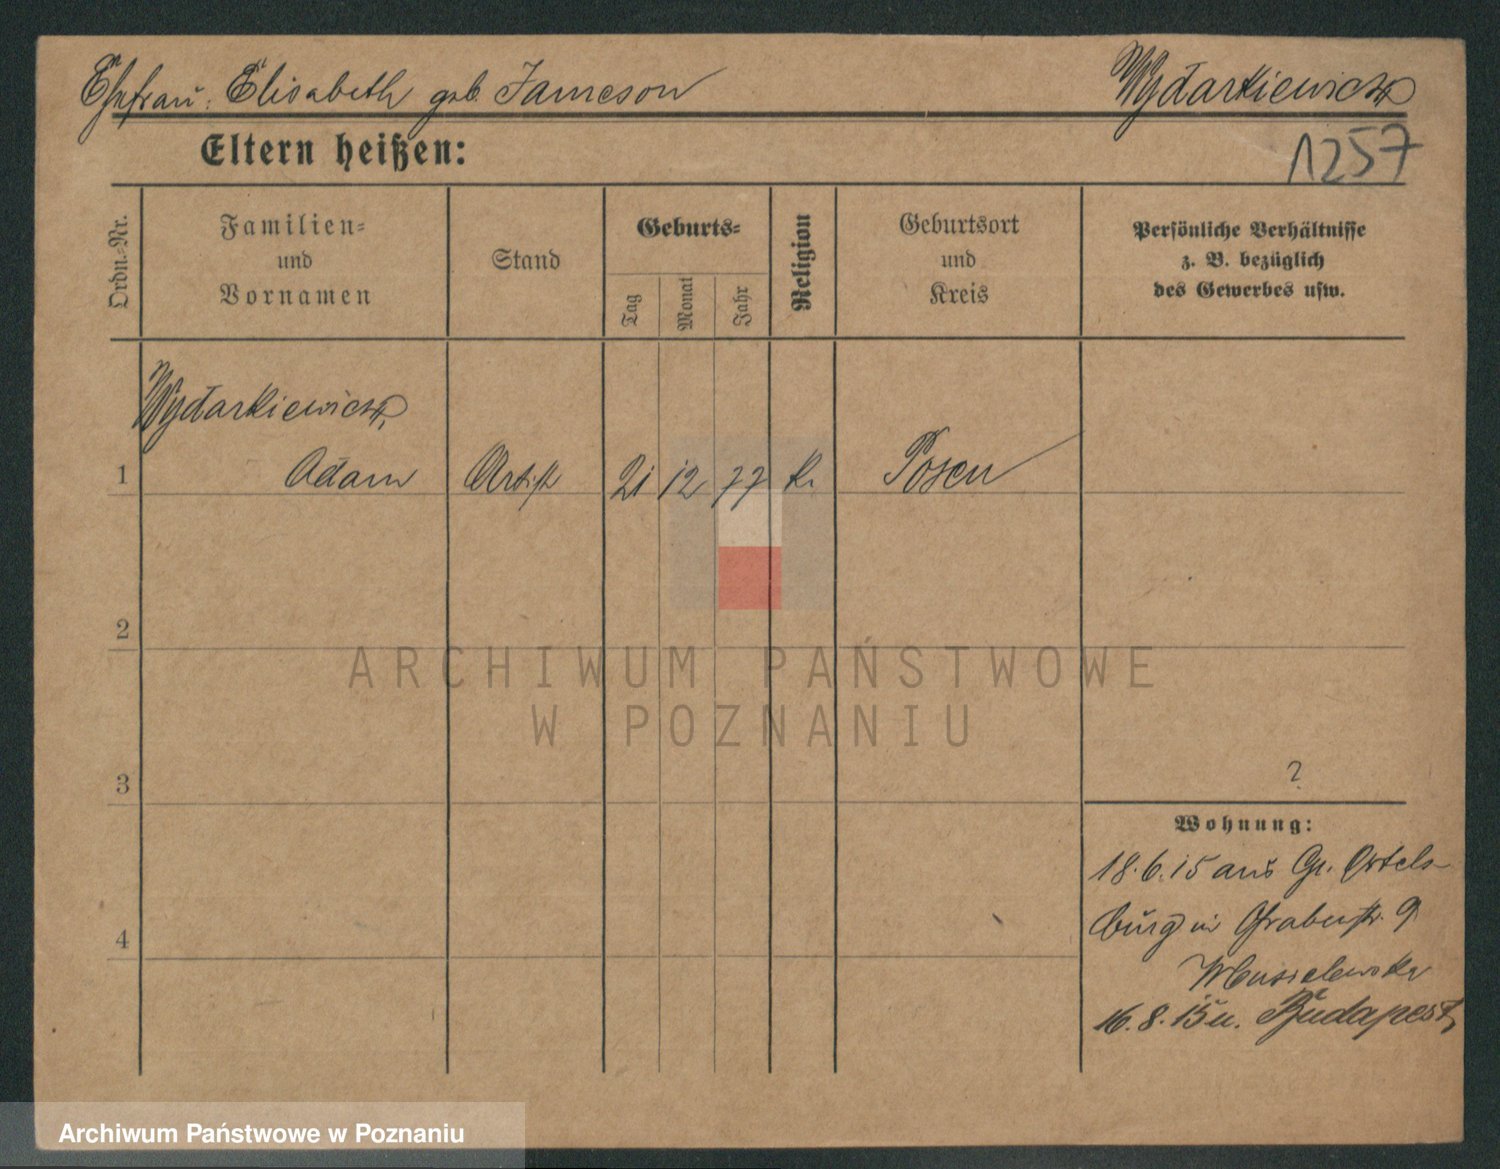 Ehefrau: Elisabeth geb. Jameson
Wydarkiewicz
1257
Eltern heißen:
Ordn.-Nr.
Familien-
und
Vornamen
Stand
Geburts-
Tag
Monat
Jahr
Religion
Geburtsort
und
Kreis
Persönliche Verhältnisse
z. B. bezüglich
des Gewerbes usw.
Wydarkiewicz,
1 Adam Artist 21 12 77 k. Posen
2
ARCHIWUM PAŃSTWOWE
W POZNANIU
3
?
Wohnung:
18.6.15 aus Gr. Ortels-
4
burg in Grabenstr. 9
16.8.15 n. Budapest
Archiwum Państwowe w Poznaniu